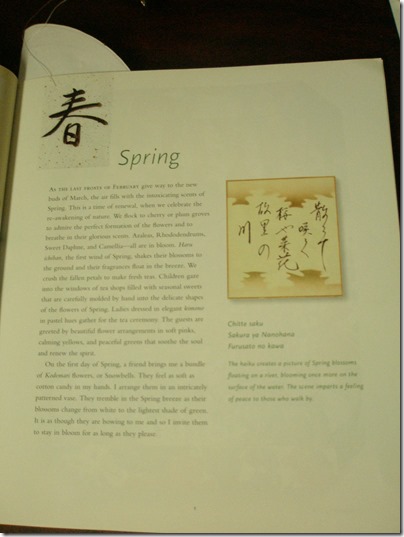 春
Spring
AS THE LAST FROSTS OF FEBRUARY give way to the new
buds of March, the air fills with the intoxicating scents of
Spring. This is a time of renewal, when we celebrate the
re-awakening of nature. We flock to cherry or plum groves
to admire the perfect formation of the flowers and to
breathe in their glorious scents. Azaleas, Rhododendrums,
Sweet Daphne, and Camellias—all are in bloom. Haru
ichiban, the first wind of Spring, shakes their blossoms to
the ground and their fragrances float in the breeze. We
crush the fallen petals to make fresh teas. Children gaze
into the windows of tea shops filled with seasonal sweets
that are carefully molded by hand into the delicate shapes
of the flowers of Spring. Ladies dressed in elegant kimono
in pastel hues gather for the tea ceremony. The guests are
greeted by beautiful flower arrangements in soft pinks,
calming yellows, and peaceful greens that soothe the soul
and renew the spirit.
On the first day of Spring, a friend brings me a bundle
of Kodeman flowers, or Snowbells. They feel as soft as
cotton candy in my hands. I arrange them in an intricately
patterned vase. They tremble in the Spring breeze as their
blossoms change from white to the lightest shade of green.
It is as though they are bowing to me and so I invite them
to stay in bloom for as long as they please.
散りて
咲く
桜や菜花
故里の
川
Chitte saku
Sakura ya Nanohana
Furusato no kawa
The haiku creates a picture of Spring blossoms
floating on a river, blooming once more on the
surface of the water. The scene imparts a feeling
of peace to those who walk by.